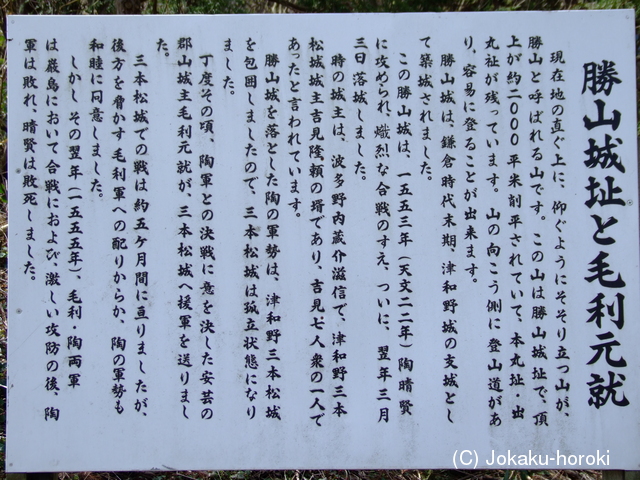 勝山城址と毛利元就
現在地の直ぐ上に、仰ぐようにそそり立つ山が、
勝山と呼ばれる山です。この山は勝山城址で、頂
上が約二〇〇〇平米削平されていて、本丸址・出
丸址が残っています。山の向こう側に登山道があ
り、容易に登ることが出来ます。
勝山城は、鎌倉時代末期、津和野城の支城とし
て築城されました。
この勝山城は、一五五三年(天文二二年)陶晴賢
に攻められ、熾烈な合戦のすえ、ついに、翌年三月
三日落城しました。
時の城主は、波多野内蔵介滋信で、津和野三本
松城城主吉見隆頼の壻であり、吉見七人衆の一人で
あったと言われています。
勝山城を落とした陶の軍勢は、津和野三本松城
を包囲しましたので、三本松城は孤立状態になり
ました。
丁度その頃、陶軍との決戦に意を決した安芸の
郡山城主毛利元就が、三本松城へ援軍を送りまし
た。
三本松城での戦は約五ケ月間に亘りましたが、
後方を脅かす毛利軍への配りからか、陶の軍勢も
和睦に同意しました。
しかし その翌年(一五五五年)、毛利・陶両軍
は厳島において合戦におよび、激しい攻防の後、陶
軍は敗れ、晴賢は敗死しました。
(C) Jokaku-horoki